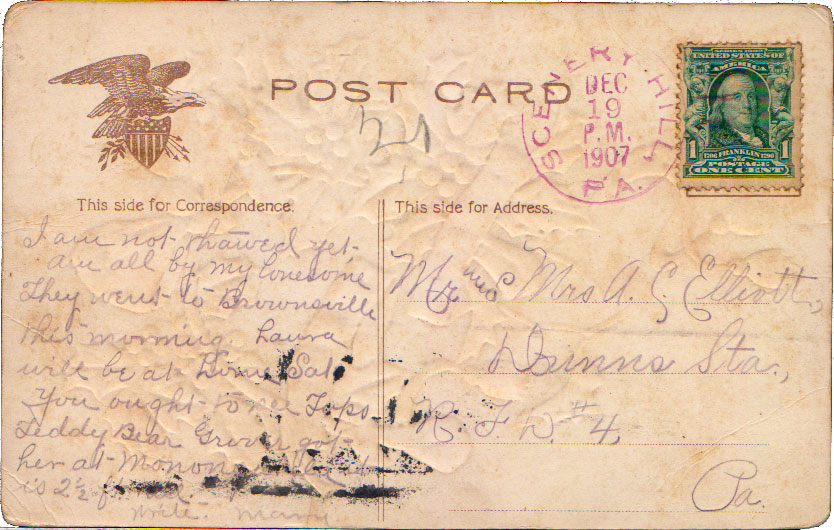 POST CARD
SCENERY HILL
DEC
19
P.M.
1907
PA.
SERIES 1902
UNITED STATES OF
AMERICA
1 FRANKLIN 1
1706 1790
POSTAGE
ONE CENT
This side for Correspondence.
I am not thawed yet
am all by my lonesome
They went to Brownsville
this morning. Laura
will be at home Sat
You ought to see
Teddy Bear Grover got
her at Monon
is 2½ ft
Write. Mary
This side for Address.
Mr and Mrs A. C. Elliott,
Dunns Sta.,
R. F. D. #4,
Pa.